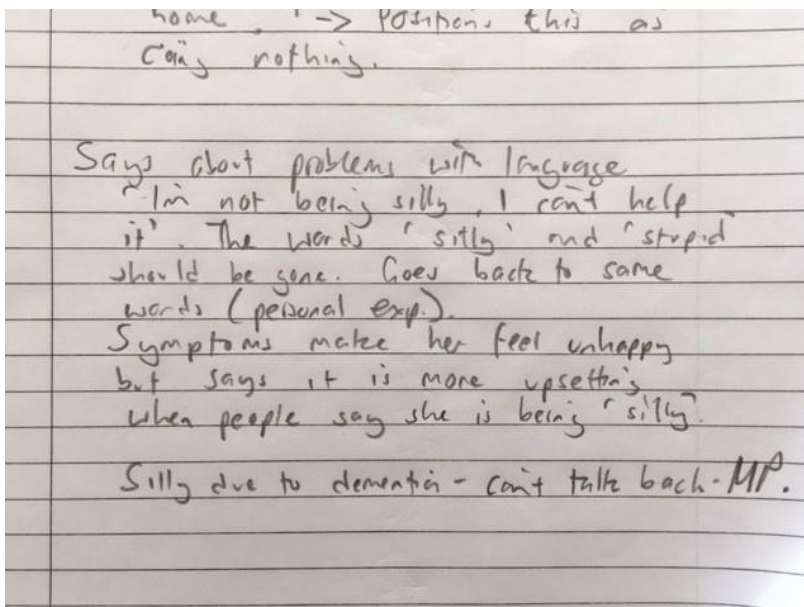 home.' -> Positions this as
nothing.
Says about problems with language
"I'm not being silly, I can't help
it". The words 'silly' and 'stupid'
should be gone. Goes back to same
words (personal exp.).
Symptoms make her feel unhappy
but says it is more upsetting
when people say she is being 'silly'.
Silly due to dementia - can't talk back - MP.